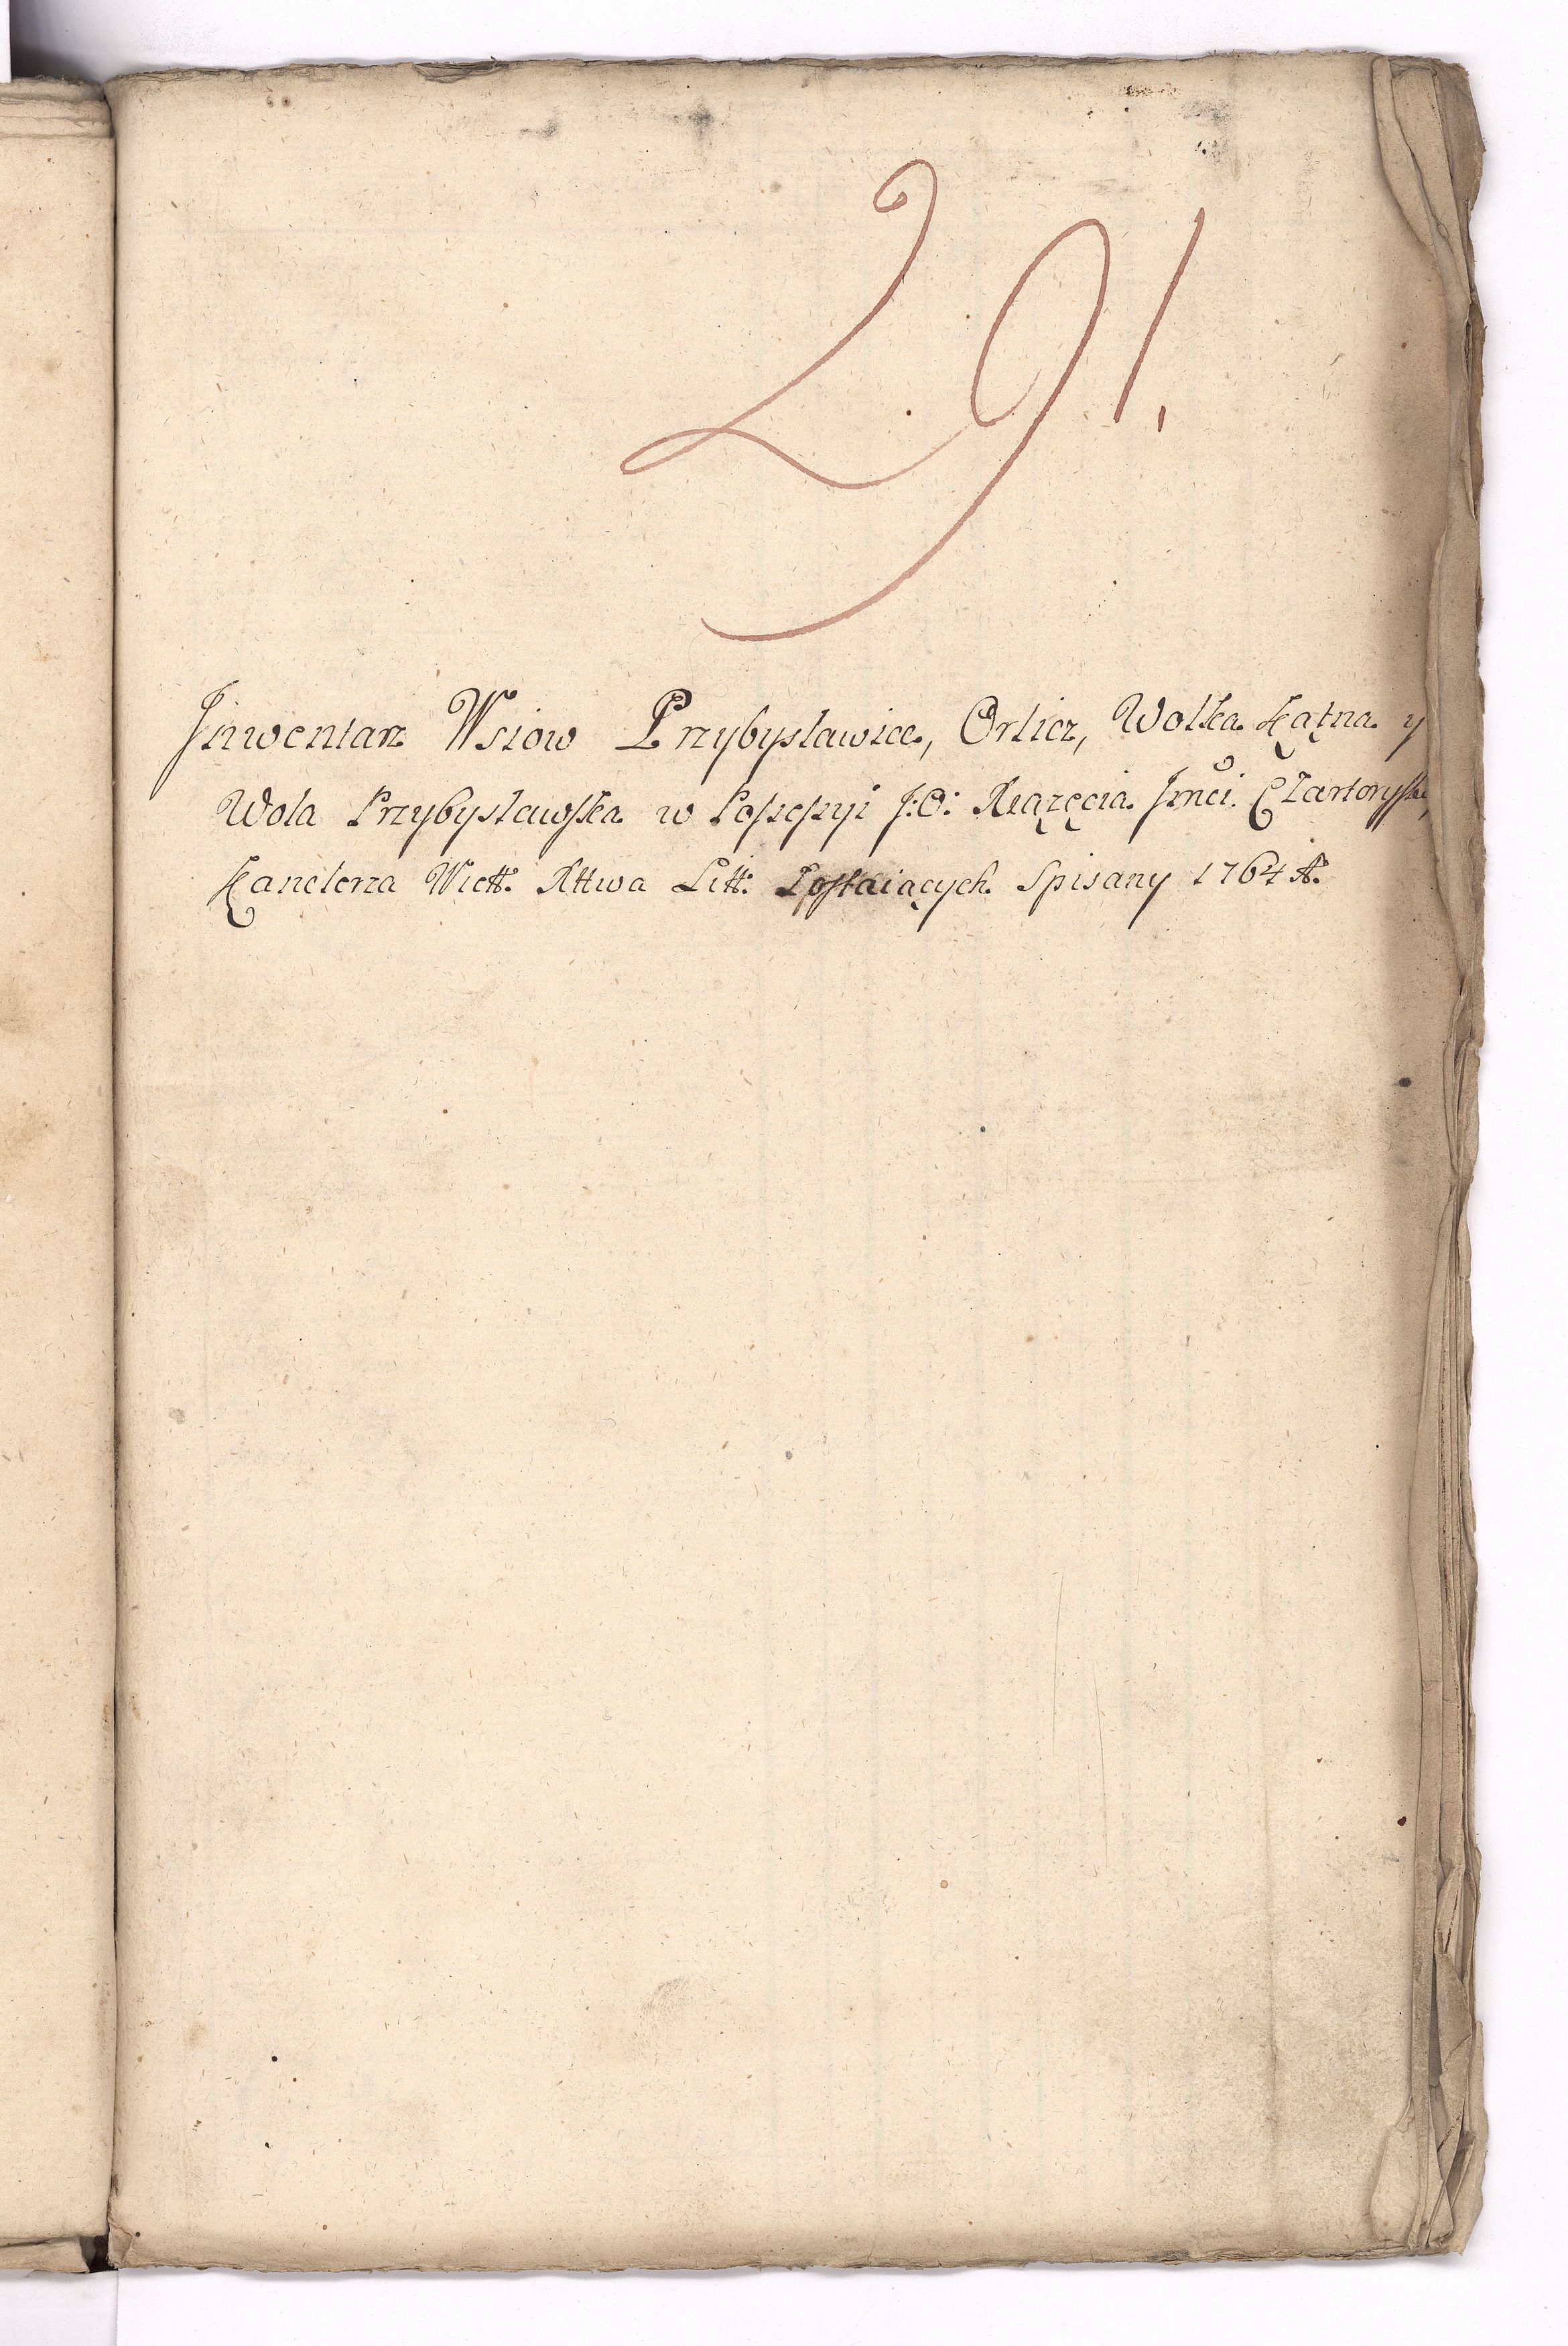 291.
Inwentarz Wsiow Przybysławice, Orlicz, Wolka Kątna y
Wola Przybysławska w Possessyi J: O: Xiązęcia Jmci Czartoryskie
Kanclerza Wielk: Xttwa Litt: Zostaiących Spisany 1764 A: